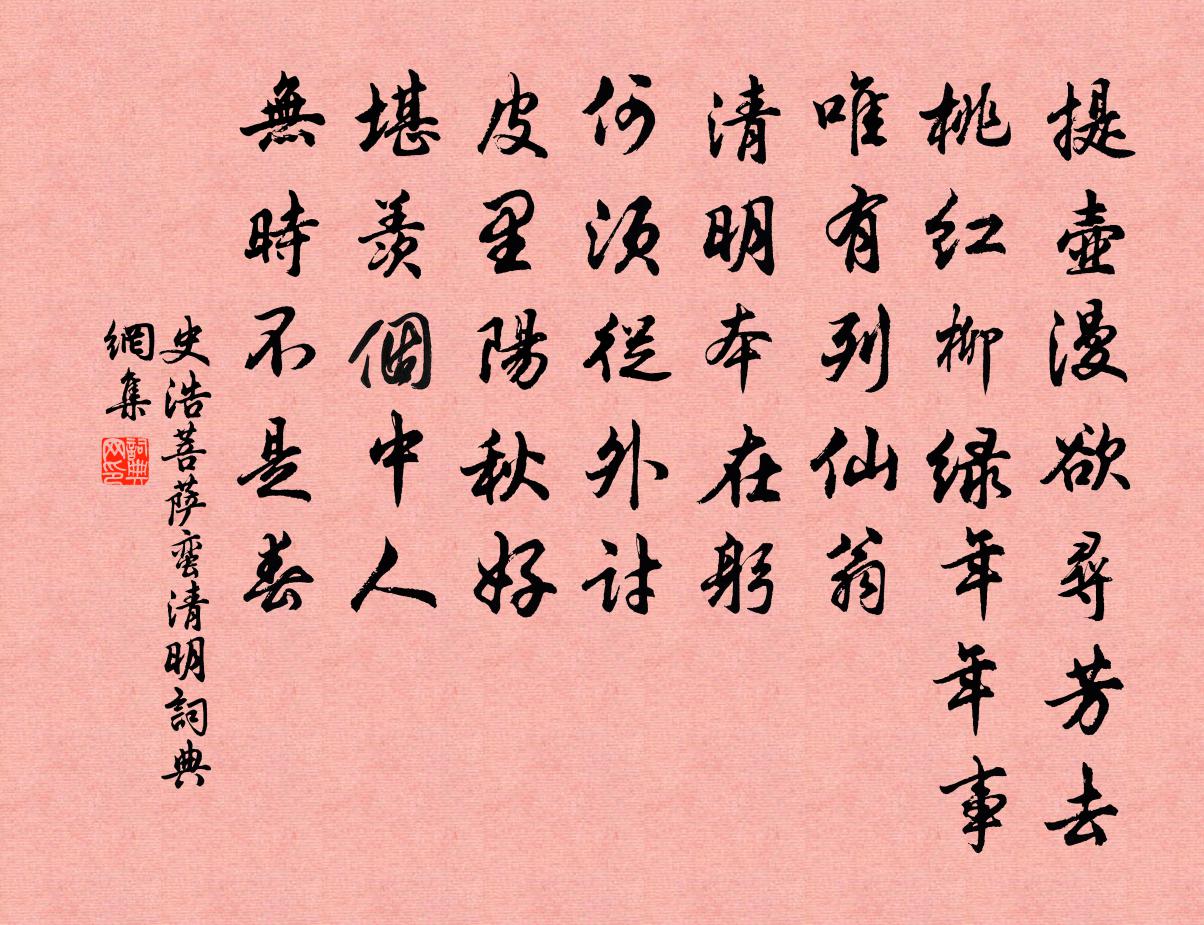 提壺漫欲尋芳去
桃紅柳綠年年事
唯有列仙翁
清明本在躬
何須從外討
皮里陽秋好
堪羨個中人
無時不是春
史浩菩薩蠻清明詞典
網集
詞典網印